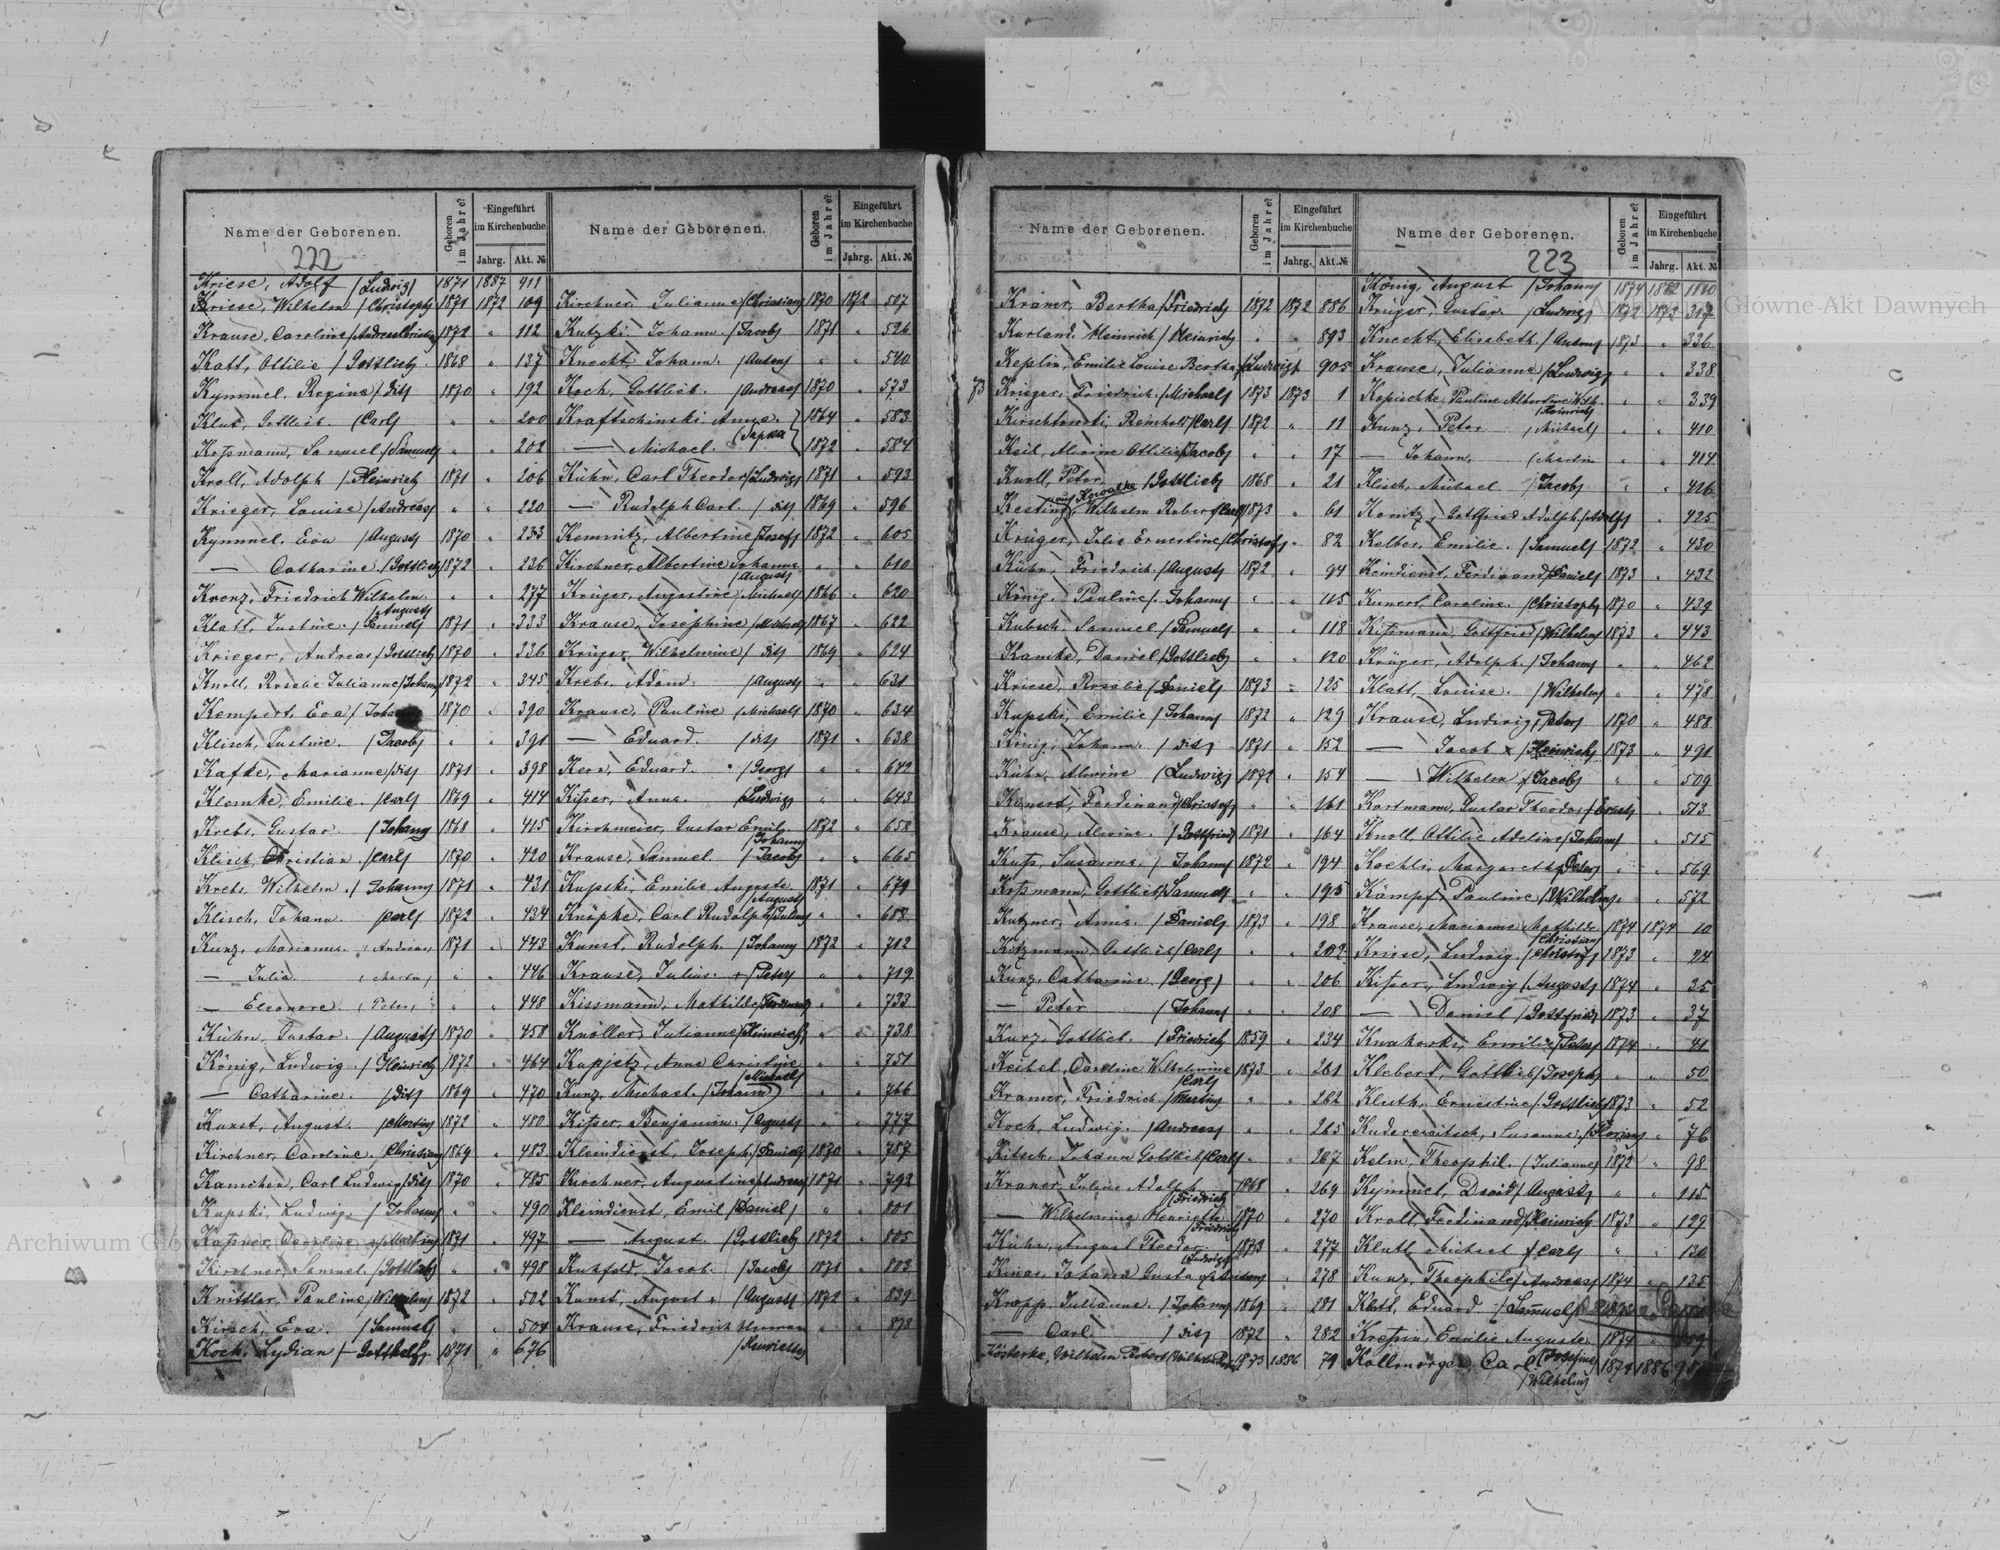 Name der Geborenen.
Geboren im Jahre?
Eingeführt im Kirchenbuche
Jahrg. Akt. №
222
Kriese, Adolf /Ludwig/ 1871 1887 411
Kriese, Wilhelm /Christoph/ 1871 1872 109
Krause, Caroline 1872 " 112
Katt, Ottilie /Gottlieb 1868 " 137
Kymmel, Regine /dis/ 1870 " 192
Klut, Gottlieb. /Carl/ " " 200
Kossmann, Samuel /Samuel/ " " 202
Kroll, Adolph /Heinrich 1871 " 206
Krieger, Louise /Andreas/ " " 220
Kymmel, Eva /August/ 1870 " 233
— Catharine /Gottlieb/ 1872 " 236
Krenz, Friedrich Wilhelm " " 277
/August/
Klatt, Justine. /Samuel/ 1871 " 333
Krieger, Andreas /Gottlieb/ 1870 " 336
Knoll, Rosalie Julianne /Johann/ 1872 " 345
Kempert, Eva / 1870 " 390
Klisch, Justine. /Jacob/ " " 391
Kafke, Marianne /dis/ 1871 " 398
Klemke, Emilie. /Carl/ 1869 " 414
Krebs, Gustav /Johann/ 1868 " 415
Klisch, Christian /Carl/ 1870 " 420
Krebs, Wilhelm. /Johann/ 1871 " 431
Klisch, Johann. /Carl/ 1872 " 434
Kunz, Marianna. /Andreas/ 1871 " 443
— Julia. /Martin/ " " 446
— Eleonore. /Peter/ " " 448
Kühn, Gustav. /August/ 1870 " 458
König, Ludwig. /Heinrich 1872 " 464
— Catharine. /dis/ 1869 " 470
Kunst, August. /Martin/ 1872 " 480
Kirchner, Caroline. /Christian/ 1869 " 483
Kamchen, Carl Ludwig /dis/ 1870 " 485
Kupski, Ludwig. /Johann/ " " 490
Caroline /Martin/ 1871 " 497
Kirchner, Samuel. /Gottlieb/ " " 498
Knittler, Pauline /Wilhelm/ 1872 " 502
Kirsch, Eva. /Samuel/ " " 504
Koch, Lydian /Gotthelf/ 1871 " 676
Name der Geborenen.
Geboren im Jahre?
Eingeführt im Kirchenbuche
Jahrg. Akt. №
Kirchner, Julianne /Christian/ 1870 1872 507
Kutzki, Johann. /Jacob/ 1871 " 526
Knecht, Johann. /Anton/ " " 540
Koch, Gottlieb. /Andreas/ 1870 " 573
Kraftschinski, Anna. 1864 " 583
— Michael. 1872 " 584
Kühn, Carl Theodor /Ludwig/ 1871 " 593
— Rudolph Carl. /dis/ 1869 " 596
Kemnitz, Albertine /Josef/ 1872 " 605
Kirchner, Albertine Johanna " " 610
/August/
Krüger, Augustine /Michael/ 1866 " 620
Krause, Josephine /Michael/ 1867 " 622
Krüger, Wilhelmine /dis/ 1869 " 624
Krebs, Adam. /August/ " " 631
Krause, Pauline /Michael/ 1870 " 634
— Eduard. /dis/ 1871 " 638
Kern, Eduard. /Georg/ " " 642
Kisser, Anna. /Ludwig/ " " 643
Kirchmeier, Gustav Emil. 1872 " 652
/Johann/
Krause, Samuel. /Jacob/ " " 665
Kupski, Emilie Auguste 1871 " 679
/August/
Knöpke, Carl Rudolph /Julius/ " " 688
Kunst, Rudolph. /Johann/ 1872 " 712
Krause, Julius. + /Peter/ " " 719
Kissmann, Mathilde /Ferdinand/ " " 733
Knöller, Julianne /Heinrich/ " " 738
Kupjetz, Anna Christine " " 751
/Michael/
Kunz, Michael. /Johann/ " " 766
Kisser, Benjamin. /August/ " " 777
Kleindienst, Joseph /Daniel/ 1870 " 787
Kirchner, Augustine /Andreas/ 1871 " 792
Kleindienst, Emil /Daniel/ " " 801
— August. /Gottlieb/ 1872 " 805
Jacob. /Jacob/ 1871 " 803
Kunst, August. /August/ 1872 " 839
Krause, Friedrich Herman " " 873
/Henriette/
Name der Geborenen.
Geboren im Jahre?
Eingeführt im Kirchenbuche
Jahrg. Akt. №
Kraner, Bertha /Friedrich/ 1872 1872 886
Kurland, Heinrich /Heinrich/ " " 893
Keplin, Emilie Louise Bertha /Ludwig/ " 905
73
Krieger, Friedrich. /Michael/ 1873 1873 1
Kirschkowski, Reinhold /Carl/ 1872 " 11
Keil, Alwine Ottilie /Jacob/ " " 17
Knoll, Peter /Gottlieb/ 1868 " 21
Kesting, Wilhelm Robert /Carl/ 1873 " 61
Krüger, Julie Ernestine /Christof/ " 82
Kühn, Friedrich. /August/ 1872 " 94
König, Pauline /Johann/ " " 115
Kubsch, Samuel /Samuel/ " " 118
Kamke, Daniel /Gottlieb/ " " 120
Kriese, Rosalie /Daniel/ 1873 " 125
Kupski, Emilie /Johann/ 1872 " 129
König, Johann. /dis/ 1871 " 152
Kühn, Alwine /Ludwig/ 1872 " 154
Kunert, Ferdinand /Christof/ " " 161
Krause, Alwine. /Gottfried/ 1871 " 164
Kuss, Susanna. /Johann/ 1872 " 194
Kossmann, Gottlieb /Samuel/ " " 195
Kutzner, Anna. /Daniel/ 1873 " 198
Kitzmann, Gottlieb /Carl/ " " 202
Kunz, Catharine. /Georg/ " " 206
— Peter /Johann/ " " 208
Kurz, Gottlieb. /Friedrich/ 1859 " 234
Keibel, Caroline Wilhelmine 1873 " 261
/Carl/
Kramer, Friedrich. /Martin/ " " 262
Koch, Ludwig. /Andreas/ " " 265
Kitsch, Johann Gottlieb /Carl/ " " 267
Kraner, Julius Adolph 1868 " 269
/Friedrich/
— Wilhelmine Henriette 1870 " 270
/Friedrich/
Kühn, August Theodor 1873 " 277
/Ludwig/
Johann Gustav " 278
Kropp, Julianne. /Johann/ 1869 " 281
— Carl. /dis/ 1872 " 282
Kösterke, Wilhelm Robert 1873 1886 79
Name der Geborenen.
Geboren im Jahre?
Eingeführt im Kirchenbuche
Jahrg. Akt. №
223
König, August /Johann/ 1874 1882
Krüger, Gustav. /Ludwig/ 1872 1873 317
Knecht, Elisabeth. /Anton/ 1873 " 336
Krause, Julianne /Ludwig/ " " 338
Kopischke, Pauline Albertine Wilh. " " 339
/Heinrich/
Kunz, Peter /Michael/ " " 410
— Johann, /Martin " " 414
Klisch, Michael /Jacob/ " " 426
Konitz, Gottfried Adolph /Adolf/ " 425
Kelber, Emilie. /Samuel/ 1872 " 430
Keindienst, Ferdinand /Daniel/ 1873 " 432
Kunert, Caroline. /Christoph/ 1870 " 439
Kissmann, Gottfried /Wilhelm/ 1873 " 443
Krüger, Adolph. /Johann/ " " 462
Klatt, Louise. /Wilhelm/ " " 478
Krause, Ludwig, /Peter/ 1870 " 488
— Jacob x /Heinrich/ 1873 " 491
— Wilhelm /Jacob/ " " 509
Kortmann, Gustav Theodor /Ernst/ " 513
Knoll, Ottilie Adeline /Johann/ " 515
Koehli, Margareth /Peter/ " " 569
Kämpf, Pauline /Wilhelm/ " 572
Krause, Marianne Mathilde 1874 1874 10
/Christian/
Kriese, Ludwig. /Christof/ 1873 " 24
Kisser, Ludwig /August/ 1874 " 25
— Daniel /Gottfried/ 1873 " 37
Emilie /Peter/ 1874 " 41
Klebert, Gottlieb /Joseph/ " " 50
Kluth, Ernestine /Gottlieb/ 1873 " 52
Susanna. /Florian/ " 76
Kelm, Theophil. /Julianne/ 1872 " 98
Kymmel, David /August/ " " 115
Kroll, Ferdinand /Heinrich 1873 " 129
Klutt, Michael /Carl/ " " 130
Kunz, Theophile /Andreas/ 1874 " 135
Klatt, Eduard. /Samuel/
Kressin, Emilie Auguste 1874 "
/Josefine/
Kollmorgen, Carl 1874 1886
/Wilhelm/
Archiwum Główne Akt Dawnych
Archiwum Główne Akt Dawnych